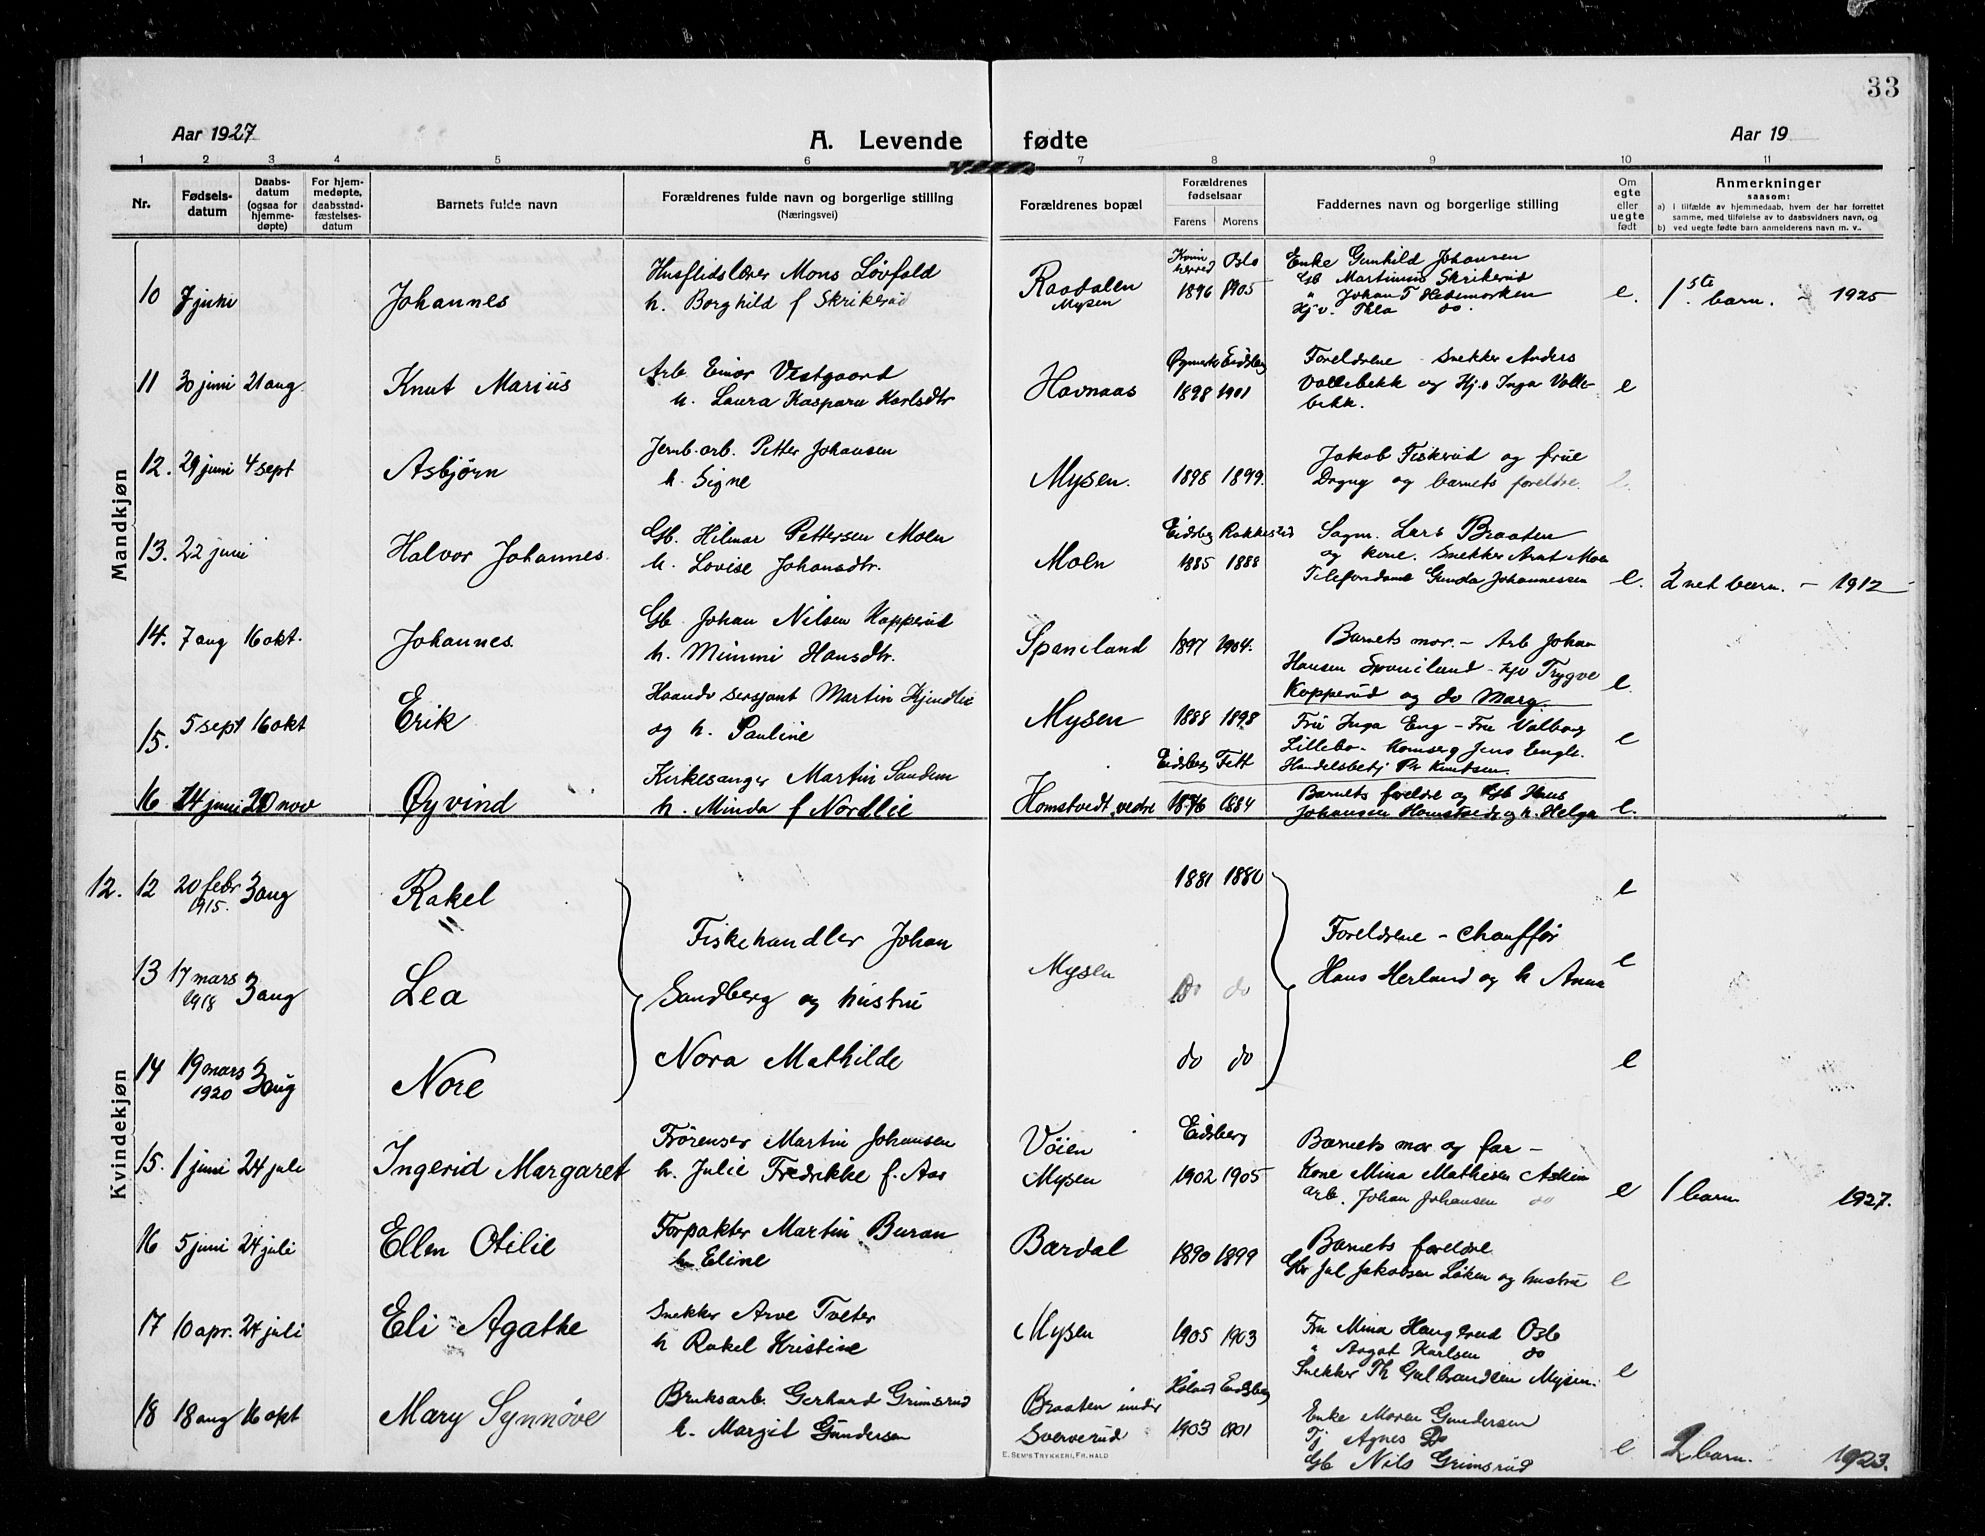 33
Aar 1927
A. Levende fødte
Aar 19
1 2 3 4 5 6 7 8 9 10 11
Nr.
Fødsels-
datum
Daabs-
datum
(ogsaa for
hjemme-
døpte)
For hjem-
medøpte,
daabsstad-
fæstelses-
datum
Barnets fulde navn
Forældrenes fulde navn og borgerlige stilling
(Næringsvei)
Forældrenes bopæl
Forældrenes
fødselsaar
Farens Morens
Faddernes navn og borgerlige stilling
Om
egte
eller
uegte
født
Anmerkninger
saasom:
a) i tilfælde av hjemmedaab, hvem der har forrettet
samme, med tilføielse av to daabsvidners navn, og
b) ved uegte fødte barn anmelderens navn m. v..
Mandkjøn
10 7 juni
Johannes
Husflidslærer Mons Løvfald
h. Borghild f Skrikerud
Raadalen
Mysen
Oslo
1896 1905
Enke Gunhild Johansen
Gb Martinius Skrikerud
" Johan T Hedemarken
Hjv. Thea do.
e.
1ste barn. - 1925
11 30 juni 21 aug.
Knut Marius
Arb. Einar Vestgaard
h. Laura Kaspara Karlsdtr
Havnaas
Øymark Eidsberg
1898 1901
Foreldrene - Snekker Anders
Vollebekk og Hj.v Inga Volle-
bekk.
e
12. 29 juni 4 sept
Asbjørn
Jernb. arb. Petter Johansen
h. Signe
Mysen.
1898 1899.
Jakob Fiskerud og frue
Dagny og barnets foreldre.
e.
13. 22 juni
Halvor Johannes.
Gb. Hilmar Pettersen Moen
h. Lovise Johansdtr.
Moen
Eidsberg Rakkestad
1885 1888
Sagm. Lars Braaten
og kone. Snekker Arnt Moen
Telefondame Gunda Johannessen
e.
2net barn. - 1912
14. 7 aug 16 okt.
Johannes.
Gb. Johan Nilsen Kopperud
h. Mimmi Hansdtr.
Spaniland
1897 1904.
Barnets mor. - Arb Johan
Hansen Spaniland - hjv Trygve
Kopperud og do Marg.
e.
15. 5 sept 16 okt
Erik
Haandv sersjant Martin Kjendlie
og h. Pauline
Mysen
1888 1898
Fru Inga Eng - Fru Valborg
Lillebo - Komserg Jens Engh.
Handelsbetj Pr Knutsen.
e
16 24 juni 20 nov
Øyvind
Kirkesanger Martin Sandem
h. Minda f Nordlie
Homstvedt vestre
Eidsberg Fett
1876 1884
Barnets foreldre og Gb Hans
Johansen Homstvedt og h. Helga
e.
Kvindekjøn
12. 12 20 febr 3 aug
1915.
Rakel
1881 1880
e
13 17 mars 3 aug
1918
Lea
Fiskehandler Johan
Sandberg og hustru
Nora Mathilde
Mysen
Do do
Foreldrene - Chauffør
Hans Herland og h Anna
e
14 19 mars 3 aug
1920
Nore
do do
e
15. 1 juni 24 juli
Ingerid Margaret
Frørenser Martin Johansen
h. Julie Fredrikke f. Aas
Vøien
Mysen
Eidsberg
1902 1905
Barnets mor og far -
Kone Mina Mathisen Askim
arb. Johan Johansen do
e
1 barn 1927.
16 5 juni 24 juli
Ellen Otilie
Forpakter Martin Buran
h Eline
Bærdal
1890 1899
Barnets foreldre
Gbr Jul Jakobsen Løken og hustru
e
17 10 apr. 24 juli
Eli Agathe
Snekker Arve Tveter
h Rakel Kristine
Mysen
1905 1903
Fru Mina Haugerud Oslo
" Aagot Karlsen do
Snekker Th Gulbrandsen Mysen.
e
18 18 aug 16 okt
Mary Synnøve
Bruksarb. Gerhard Grimsrud
h. Margit Gundersen
Braaten under
Sververud
Høland Eidsberg
1903 1901
Enke Maren Gundersen
Tj Agnes Do
Gb Nils Grimsrud
e
2 barn. 1923.
E. SEM'S TRYKKERI, FR.HALD